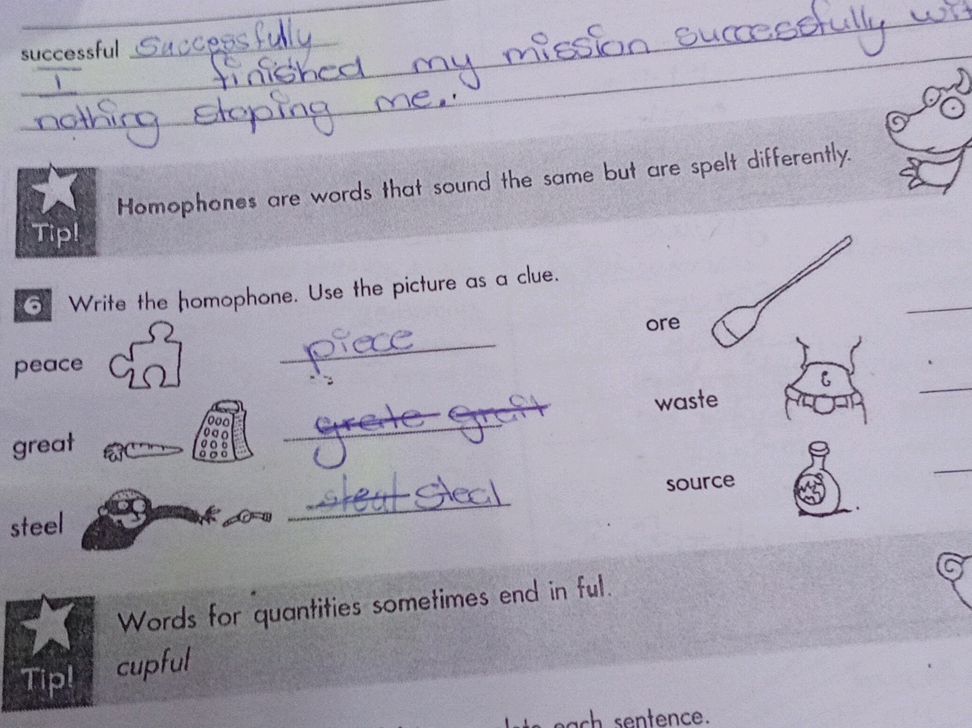 successful successfully
I finished my mission successfully wit
nothing stoping me.
Tip!
Homophones are words that sound the same but are spelt differently.
6 Write the homophone. Use the picture as a clue.
peace piece
ore
great grate grait
waste
steel steal
source
Tip!
Words for quantities sometimes end in ful.
cupful
each sentence.